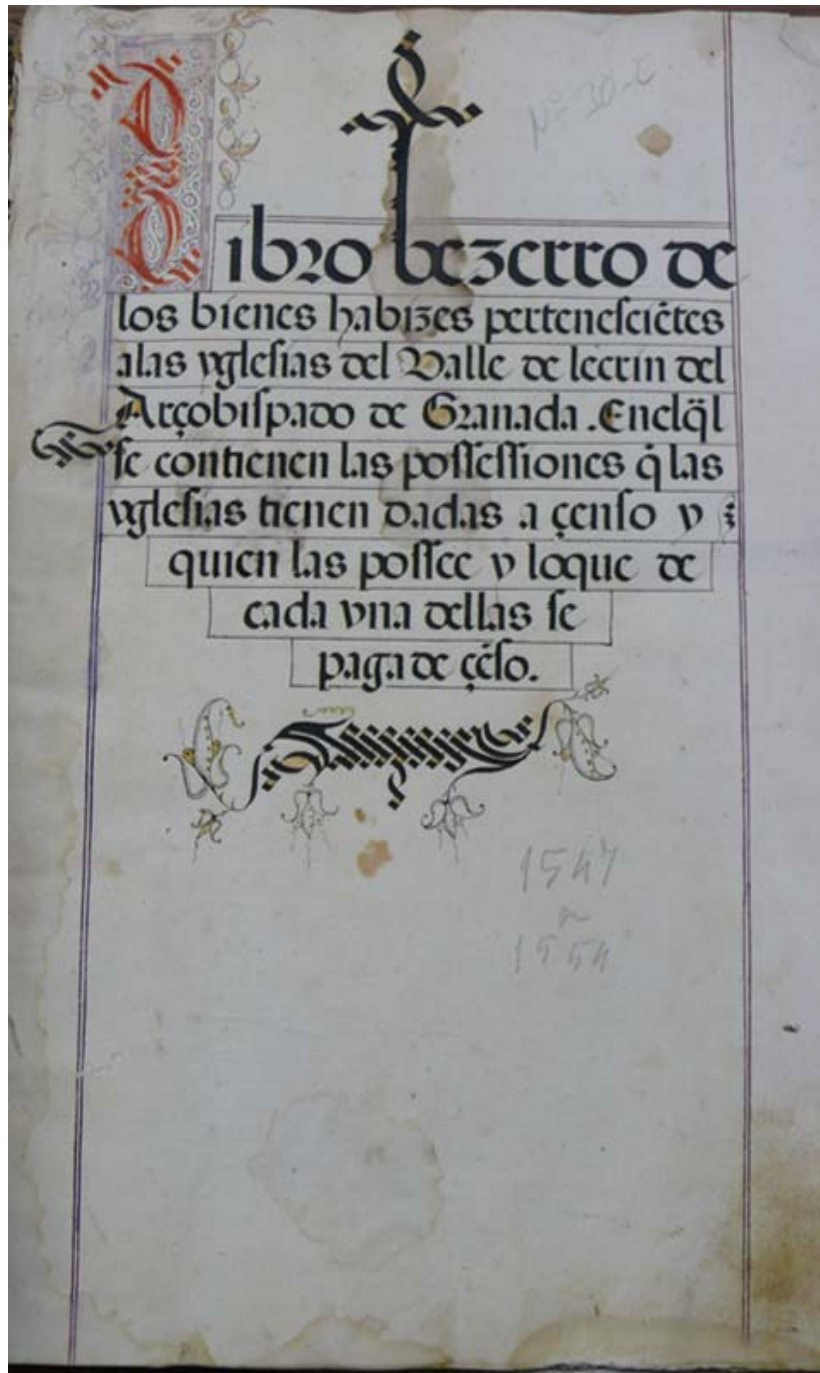 Nº 30-c
Libro bezerro de
los bienes habizes pertenesciẽtes
a las yglesias del Valle de lecrin del
Arçobispado de Granada. Enel q̃l
se contienen las possessiones q̃ las
yglesias tienen dadas a çenso y
quien las possee y loque de
cada vna dellas se
paga de çẽso.
1547
a
1554